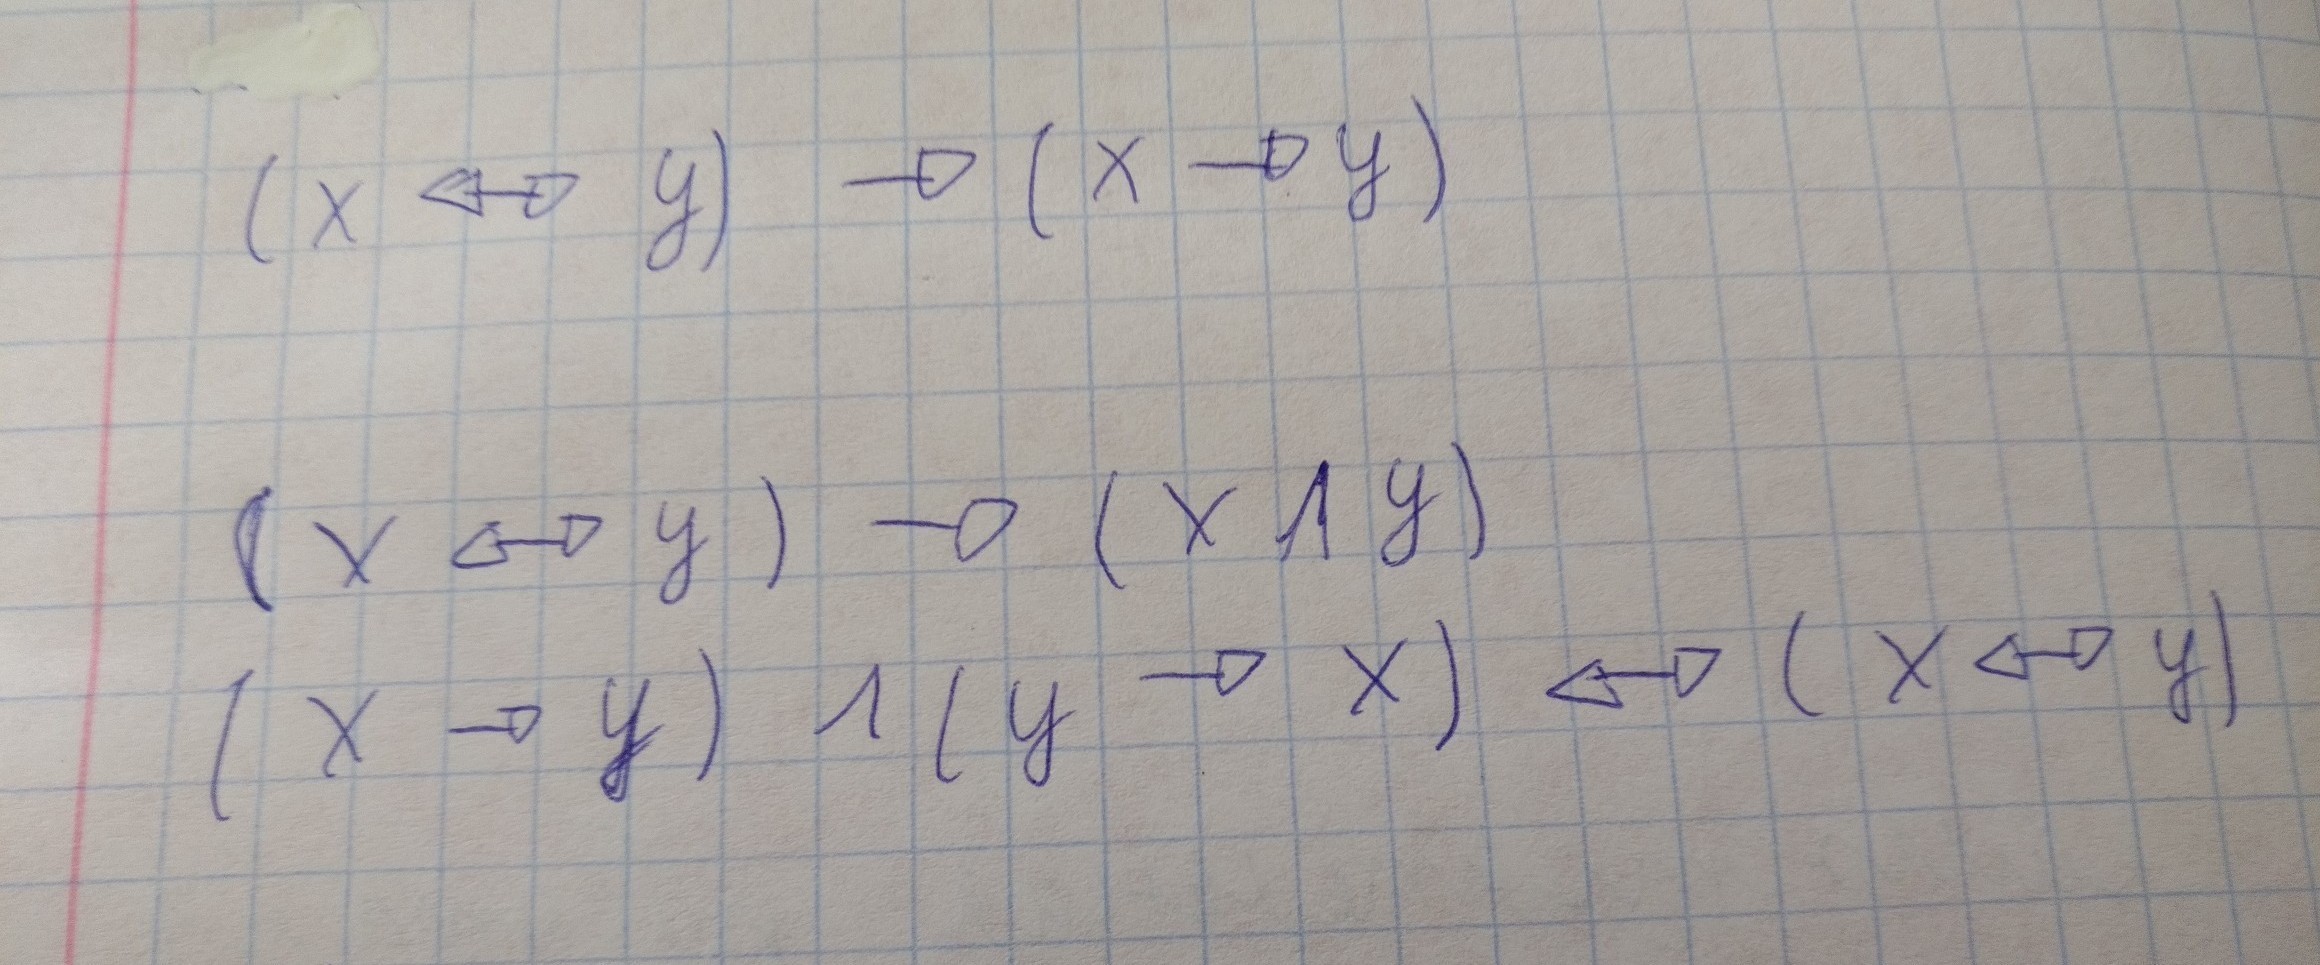 (x ↔ y) → (x → y)
(x ↔ y) → (x ∧ y)
(x → y) ∧ (y → x) ↔ (x ↔ y)